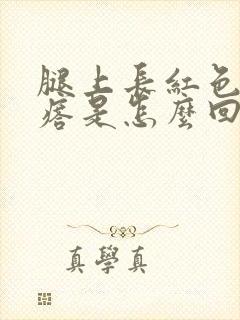 腿上長紅色
痞是怎麼回
真學真